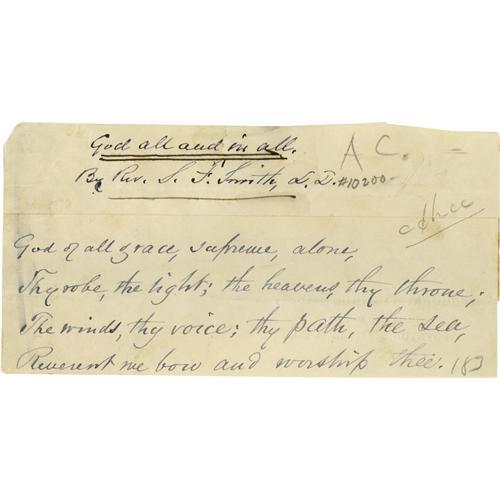 God all and in all.
A C.
By Rev. S. F. Smith, D. D. #10200
God of all grace, supreme, alone,
Thy robe, the light; the heavens, thy throne;
The winds, thy voice; thy path, the sea,
Reverent we bow and worship thee.